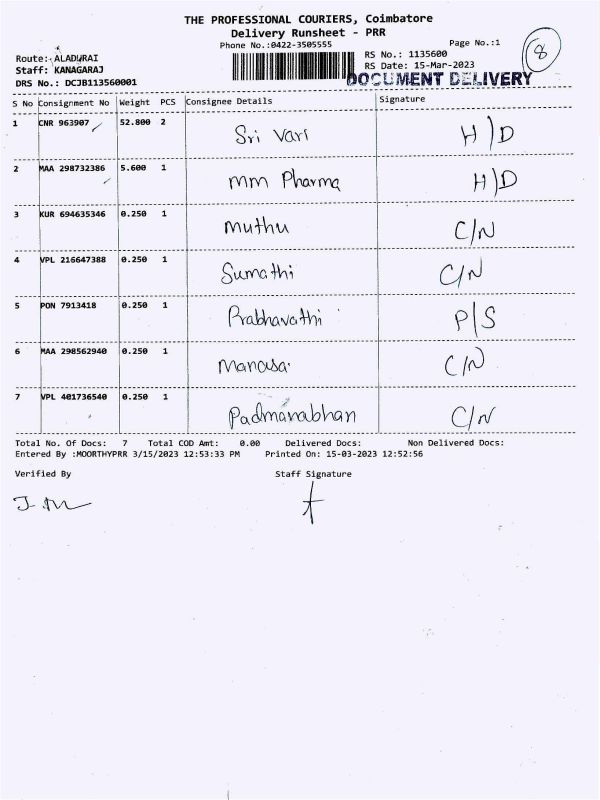 THE PROFESSIONAL COURIERS, Coimbatore
Delivery Runsheet - PRR
Phone No.:0422-3505555 Page No.:1
8
Route: ALADURAI RS No.: 1135600
Staff: KANAGARAJ RS Date: 15-Mar-2023
DRS No.: DCJB113560001 DOCUMENT DELIVERY
S No Consignment No Weight PCS Consignee Details Signature
1 CNR 963907 52.800 2 Sri Vari H/D
2 MAA 298732386 5.600 1 mm Pharma H/D
3 KUR 694635346 0.250 1 muthu C/N
4 VPL 216647388 0.250 1 Sumathi C/N
5 PON 7913418 0.250 1 Prabhavathi P/S
6 MAA 298562940 0.250 1 manasa C/N
7 VPL 401736540 0.250 1 Padmanabhan C/N
Total No. Of Docs: 7 Total COD Amt: 0.00 Delivered Docs: Non Delivered Docs:
Entered By :MOORTHYPRR 3/15/2023 12:53:33 PM Printed On: 15-03-2023 12:52:56
Verified By Staff Signature